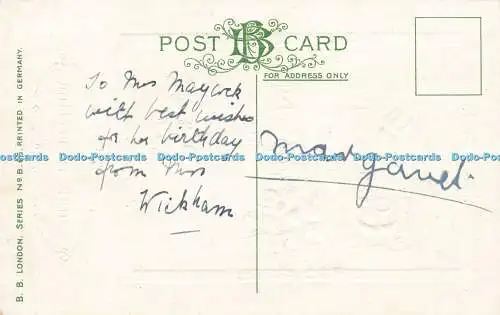 POST BB CARD
FOR ADDRESS ONLY
To Mrs Maycock
with best wishes
for her birthday
from Mrs
Wickham
Margaret.
B. B. LONDON, SERIES No B. PRINTED IN GERMANY.
Dodo-Postcards Dodo-Postcards Dodo-Postcards Dodo-Postcards Dodo-Postcards Dodo-Postcards